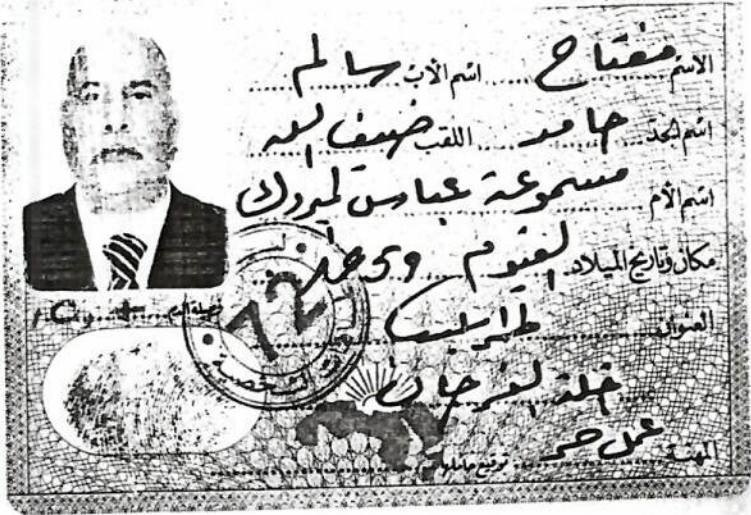 الاسم مفتاح اسم الأب سالم
اسم الجد حامد اللقب ضيف الله
اسم الأم مسموعة عباس لمبروك
مكان وتاريخ الميلاد الفيوم
العنوان طرابلس
فصيلة الدم
خلة الفرجان
المهنة عمل حر توقيع حاملها
72
الشخصية